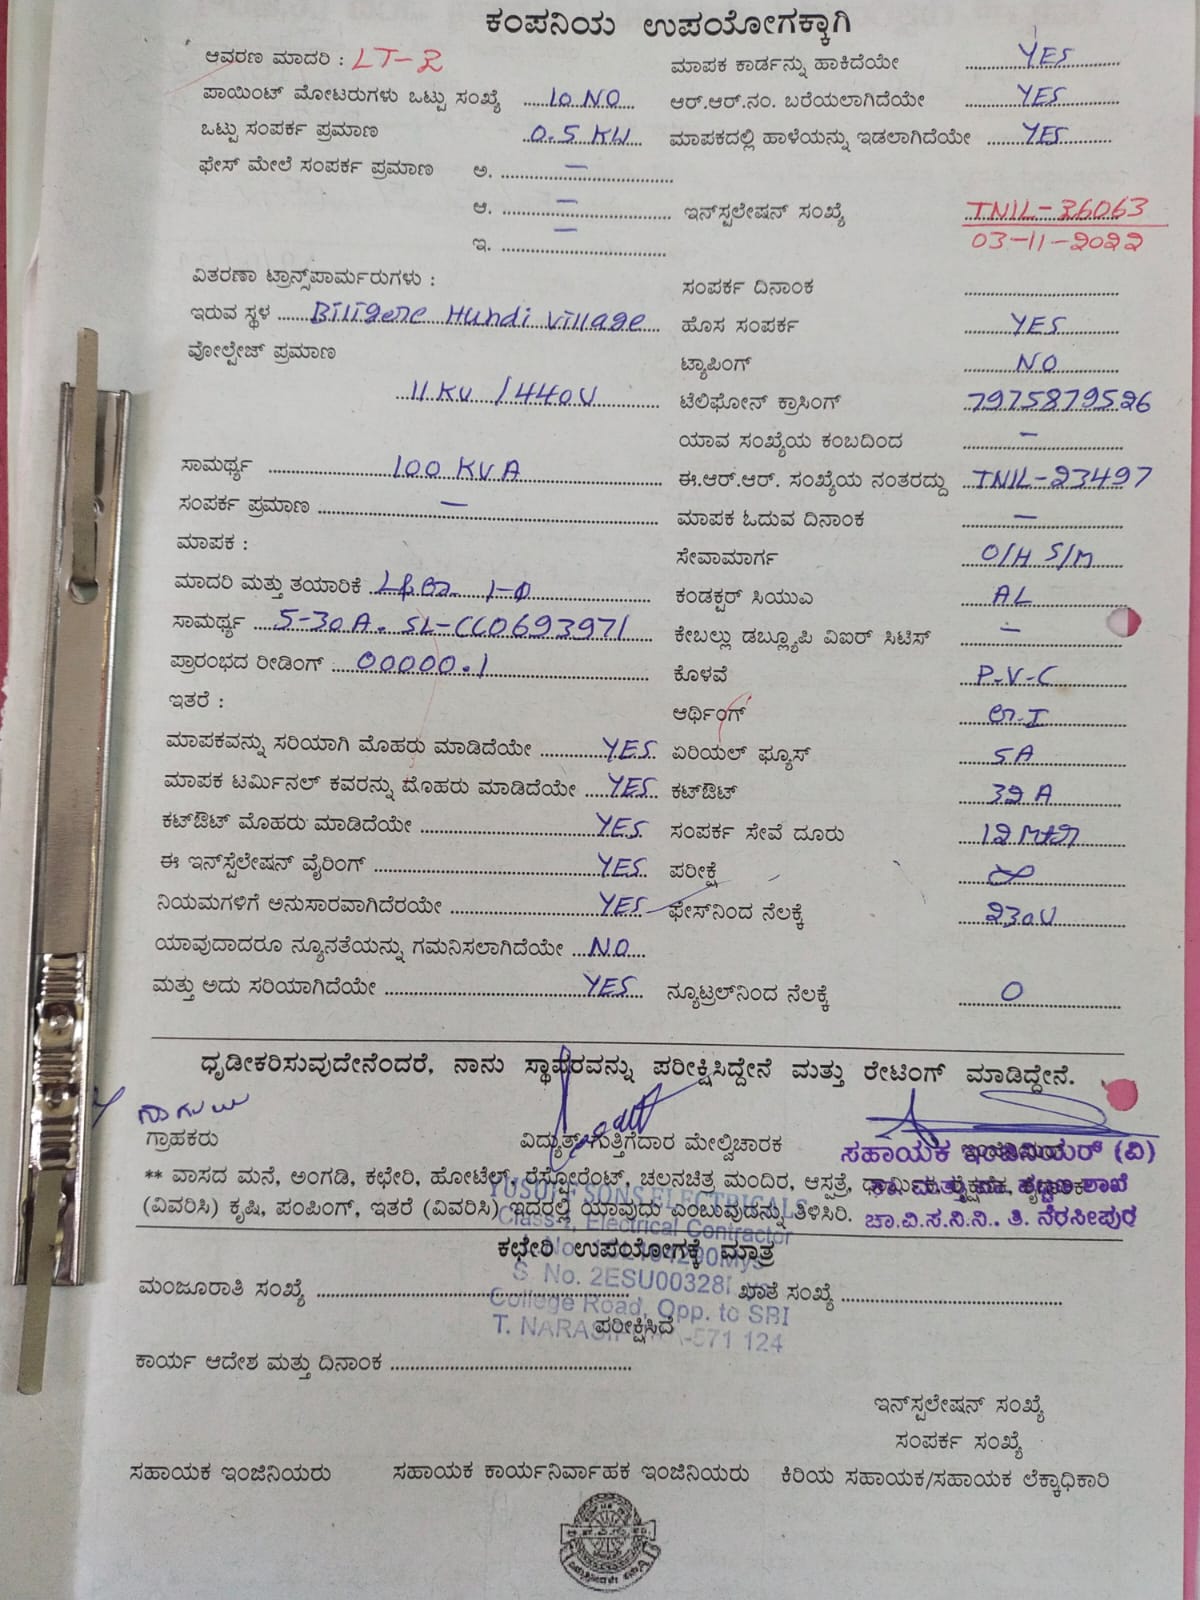 ಕಂಪನಿಯ ಉಪಯೋಗಕ್ಕಾಗಿ
ಆವರಣ ಮಾದರಿ : LT-2 ಮಾಪಕ ಕಾರ್ಡನ್ನು ಹಾಕಿದೆಯೇ YES
ಪಾಯಿಂಟ್ ಮೋಟರುಗಳು ಒಟ್ಟು ಸಂಖ್ಯೆ 10 NO ಆರ್.ಆರ್.ನಂ. ಬರೆಯಲಾಗಿದೆಯೇ YES
ಒಟ್ಟು ಸಂಪರ್ಕ ಪ್ರಮಾಣ 0.5 KW ಮಾಪಕದಲ್ಲಿ ಹಾಳೆಯನ್ನು ಇಡಲಾಗಿದೆಯೇ YES
ಫೇಸ್ ಮೇಲೆ ಸಂಪರ್ಕ ಪ್ರಮಾಣ ಅ. –
ಆ. – ಇನ್‌ಸ್ಪಲೇಷನ್ ಸಂಖ್ಯೆ TNIL-36063
ಇ. – 03-11-2022
ವಿತರಣಾ ಟ್ರಾನ್ಸ್‌ಪಾರ್ಮರುಗಳು : ಸಂಪರ್ಕ ದಿನಾಂಕ
ಇರುವ ಸ್ಥಳ Biligere Hundi village ಹೊಸ ಸಂಪರ್ಕ YES
ವೋಲ್ಟೇಜ್ ಪ್ರಮಾಣ ಟ್ಯಾಪಿಂಗ್ NO
11 KV / 440V ಟೆಲಿಫೋನ್ ಕ್ರಾಸಿಂಗ್ 7975879526
ಯಾವ ಸಂಖ್ಯೆಯ ಕಂಬದಿಂದ –
ಸಾಮರ್ಥ್ಯ 100 KVA ಈ.ಆರ್.ಆರ್. ಸಂಖ್ಯೆಯ ನಂತರದ್ದು TNIL-23497
ಸಂಪರ್ಕ ಪ್ರಮಾಣ – ಮಾಪಕ ಓದುವ ದಿನಾಂಕ –
ಮಾಪಕ : ಸೇವಾಮಾರ್ಗ O/H S/M
ಮಾದರಿ ಮತ್ತು ತಯಾರಿಕೆ 1-Φ ಕಂಡಕ್ಟರ್ ಸಿಯುಎ AL
ಸಾಮರ್ಥ್ಯ 5-30A. SL-CC0693971 ಕೇಬಲ್ಲು ಡಬ್ಲ್ಯೂಪಿ ವಿಐರ್ ಸಿಟಿಸ್ –
ಪ್ರಾರಂಭದ ರೀಡಿಂಗ್ 00000.1 ಕೊಳವೆ P-V-C
ಇತರೆ : ಆರ್ಥಿಂಗ್
ಮಾಪಕವನ್ನು ಸರಿಯಾಗಿ ಮೊಹರು ಮಾಡಿದೆಯೇ YES ಏರಿಯಲ್ ಫ್ಯೂಸ್ 5A
ಮಾಪಕ ಟರ್ಮಿನಲ್ ಕವರನ್ನು ಮೊಹರು ಮಾಡಿದೆಯೇ YES ಕಟ್‌ಔಟ್ 32 A
ಕಟ್‌ಔಟ್ ಮೊಹರು ಮಾಡಿದೆಯೇ YES ಸಂಪರ್ಕ ಸೇವೆ ದೂರು 12
ಈ ಇನ್‌ಸ್ಪೆಲೇಷನ್ ವೈರಿಂಗ್ YES ಪರೀಕ್ಷೆ ∞
ನಿಯಮಗಳಿಗೆ ಅನುಸಾರವಾಗಿದೆರಯೇ YES ಫೇಸ್‌ನಿಂದ ನೆಲಕ್ಕೆ 230V
ಯಾವುದಾದರೂ ನ್ಯೂನತೆಯನ್ನು ಗಮನಿಸಲಾಗಿದೆಯೇ NO
ಮತ್ತು ಅದು ಸರಿಯಾಗಿದೆಯೇ YES ನ್ಯೂಟ್ರಲ್‌ನಿಂದ ನೆಲಕ್ಕೆ 0
ಧೃಡೀಕರಿಸುವುದೇನೆಂದರೆ, ನಾನು ಸ್ಥಾವರವನ್ನು ಪರೀಕ್ಷಿಸಿದ್ದೇನೆ ಮತ್ತು ರೇಟಿಂಗ್ ಮಾಡಿದ್ದೇನೆ.
ಗ್ರಾಹಕರು ವಿದ್ಯುತ್ ಗುತ್ತಿಗೆದಾರ ಮೇಲ್ವಿಚಾರಕ ಸಹಾಯಕ ಇಂಜಿನಿಯರ್ (ವಿ)
** ವಾಸದ ಮನೆ, ಅಂಗಡಿ, ಕಛೇರಿ, ಹೋಟೆಲ್, ರೆಸ್ಟೋರೆಂಟ್, ಚಲನಚಿತ್ರ ಮಂದಿರ, ಆಸ್ಪತ್ರೆ, ಶಾಖೆ
(ವಿವರಿಸಿ) ಕೃಷಿ, ಪಂಪಿಂಗ್, ಇತರೆ (ವಿವರಿಸಿ) ಇದರಲ್ಲಿ ಯಾವುದು ಎಂಬುವುದನ್ನು ತಿಳಿಸಿರಿ. ಚಾ.ವಿ.ಸ.ನಿ.ನಿ.. ತಿ. ನರಸೀಪುರ
YUSUF SONS ELECTRICALS
Class-1, Electrical Contractor
ಕಛೇರಿ ಉಪಯೋಗಕ್ಕೆ ಮಾತ್ರ
S. No. 2ESU00328
ಮಂಜೂರಾತಿ ಸಂಖ್ಯೆ ಖಾತೆ ಸಂಖ್ಯೆ
College Road, Opp. to SBI
ಪರೀಕ್ಷಿಸಿದೆ
571 124
ಕಾರ್ಯ ಆದೇಶ ಮತ್ತು ದಿನಾಂಕ
ಇನ್‌ಸ್ಪಲೇಷನ್ ಸಂಖ್ಯೆ
ಸಂಪರ್ಕ ಸಂಖ್ಯೆ
ಸಹಾಯಕ ಇಂಜಿನಿಯರು ಸಹಾಯಕ ಕಾರ್ಯನಿರ್ವಾಹಕ ಇಂಜಿನಿಯರು ಕಿರಿಯ ಸಹಾಯಕ/ಸಹಾಯಕ ಲೆಕ್ಕಾಧಿಕಾರಿ